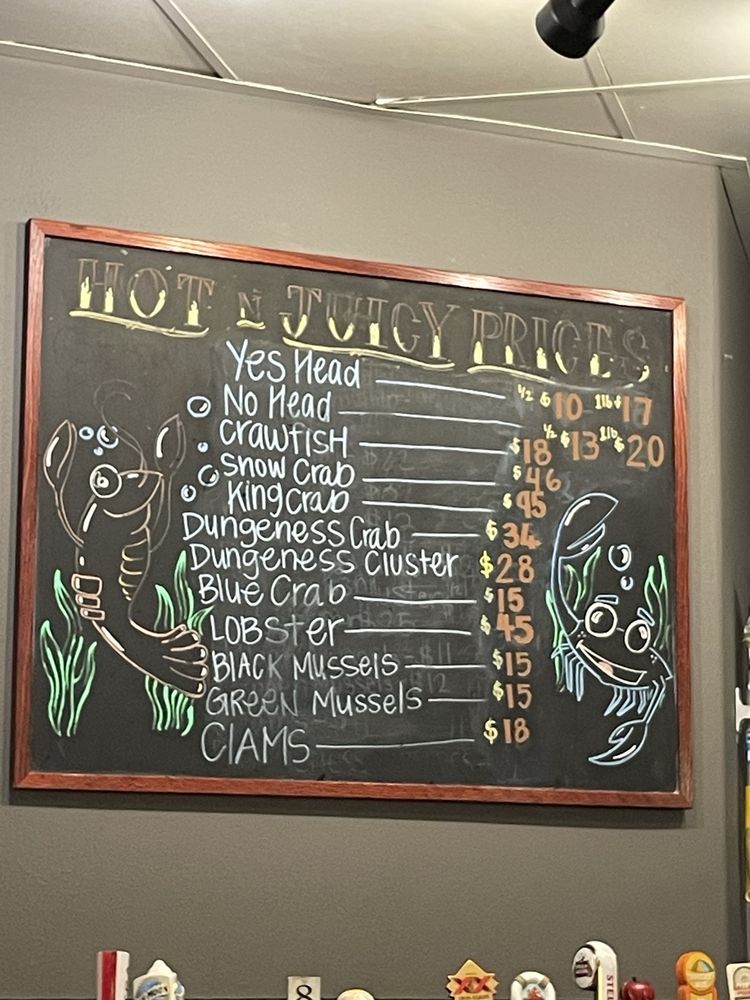 HOT N JUICY PRICES
Yes Head ½ $10 1lb $17
No Head ½ $13 1lb $20
CrawfisH $18
Snow Crab $46
King Crab $95
Dungeness Crab $34
Dungeness Cluster $28
Blue Crab $15
LOBSter $45
BlACK Mussels $15
GReeN Mussels $15
ClAMS $18
8
XX